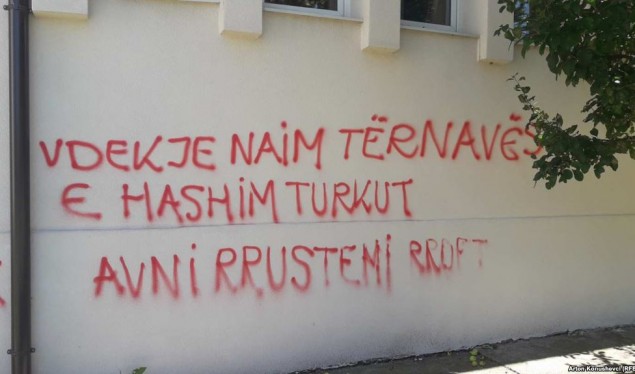 VDEKJE NAIM TËRNAVËS
E HASHIM TURKUT
AVNI RRUSTEMI RROFT
Arton Konushevci (RFE